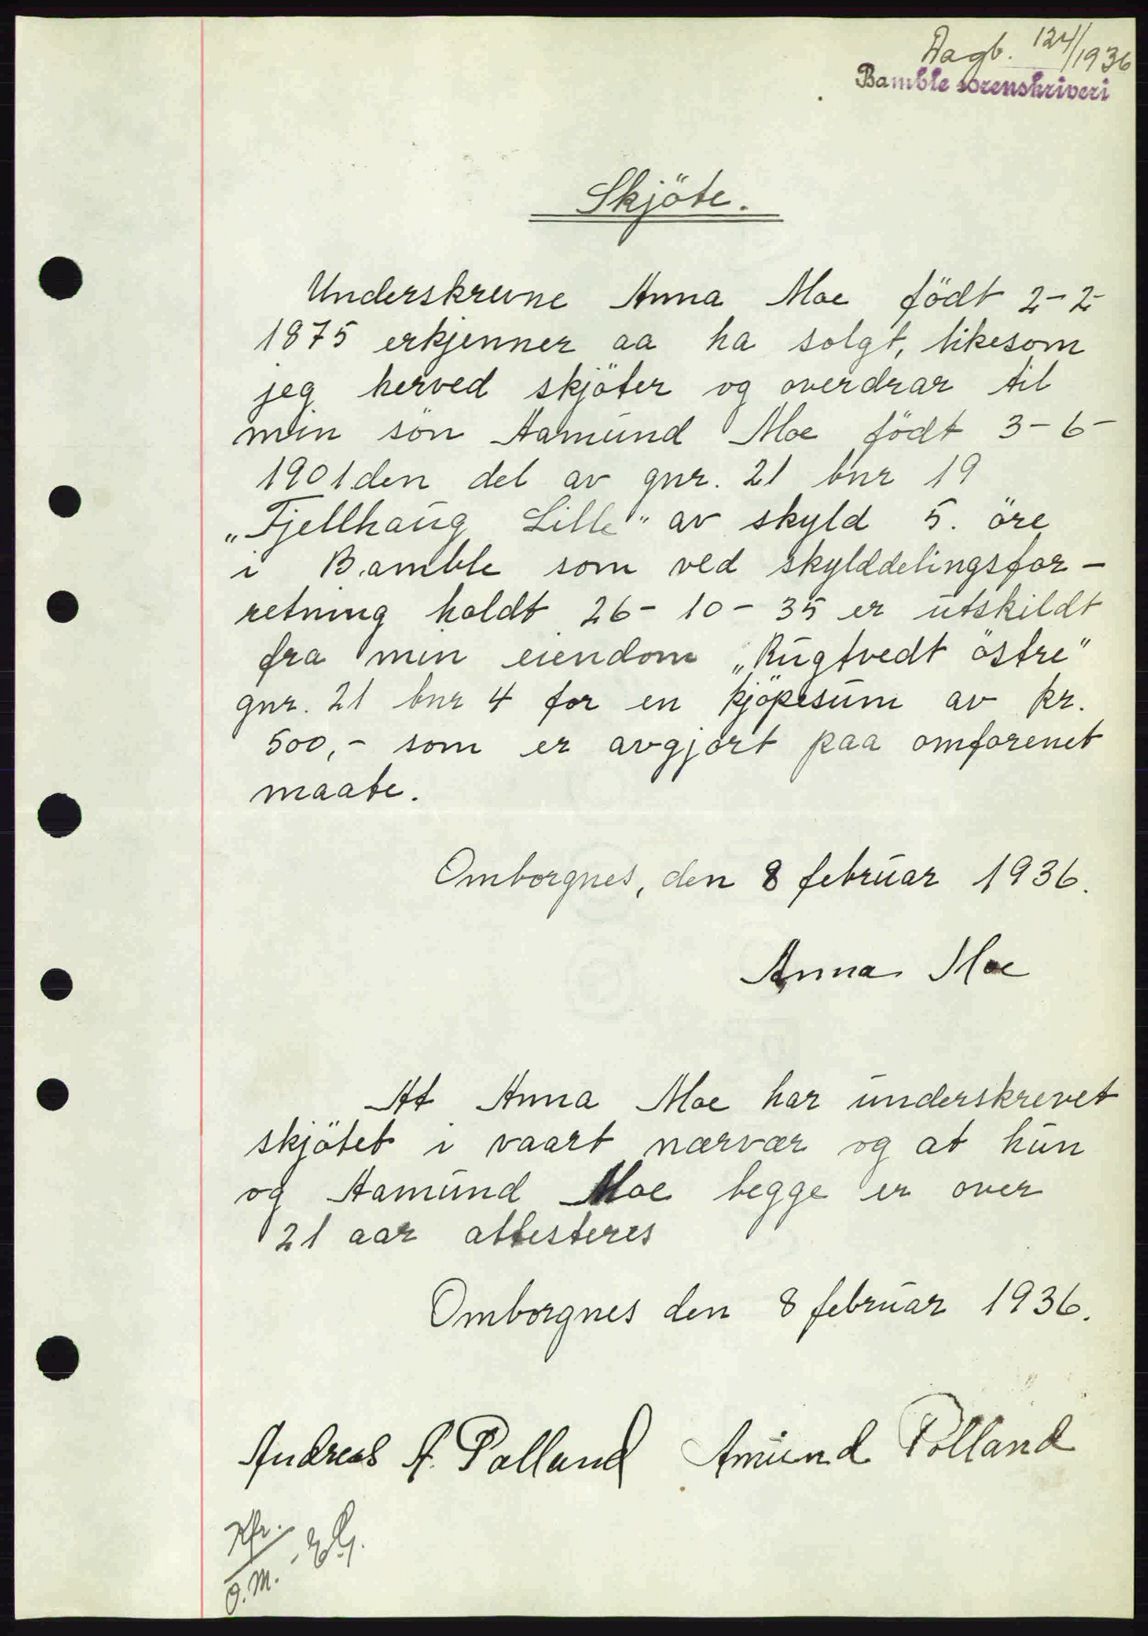 Dagb. 124/1936
Bamble sorenskriveri
Skjöte.
Underskrevne Anna Moe födt 2-2-
1875 erkjenner aa ha solgt, likesom
jeg herved skjöter og overdrar til
min sön Aamund Moe födt 3-6-
1901 den del av gnr. 21 bnr 19
„Fjellhaug Lille" av skyld 5. öre
i Bamble som ved skylddelingsfor-
retning holdt 26-10-35 er utskildt
fra min eiendom „Rugtvedt östre"
gnr. 21 bnr 4 for en kjöpesum av kr.
500,- som er avgjort paa omforenet
maate.
Omborgnes, den 8 februar 1936.
Anna Moe
At Anna Moe har underskrevet
skjötet i vaart nærvær og at hun
og Aamund Moe begge er over
21 aar attesteres
Omborgnes den 8 februar 1936.
Andreas A. Polland Amund Polland